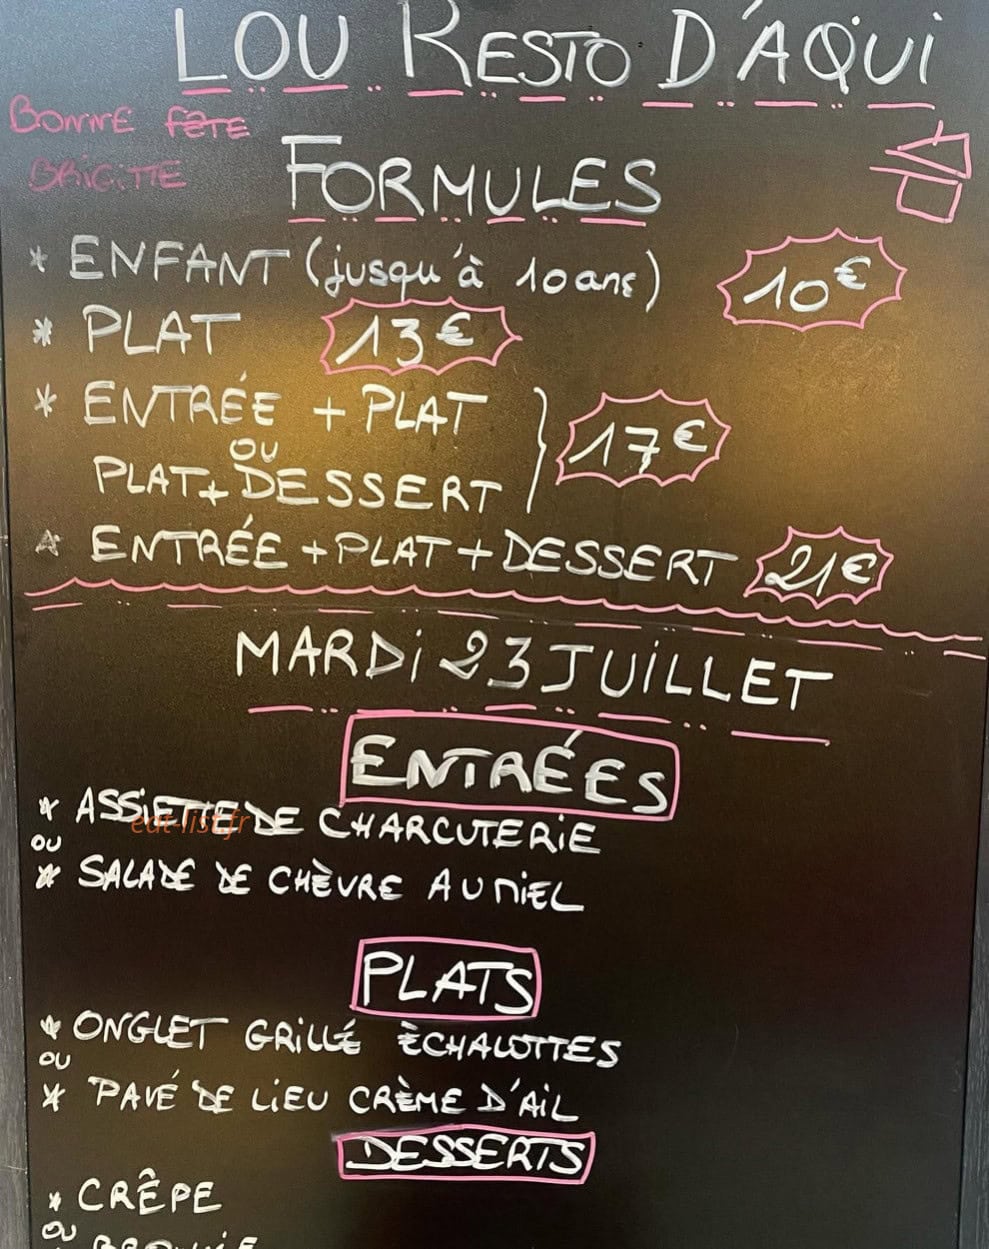 LOU RESTO D'AQUI
BONNE FÊTE
BRIGITTE
FORMULES
* ENFANT (jusqu'à 10 ans) 10€
* PLAT 13€
* ENTRÉE + PLAT
OU
PLAT + DESSERT
17€
* ENTRÉE + PLAT + DESSERT 21€
MARDi 23 JUiLLET
ENTRÉES
* ASSiETTE DE CHARCUTERiE
eat-list.fr
OU
* SALADE DE CHÈVRE AU MiEL
PLATS
* ONGLET GRiLLÉ ÈCHALOTTES
OU
* PAVÉ DE LiEU CRÈME D'AiL
DESSERTS
* CRÊPE
OU
BROWNiE